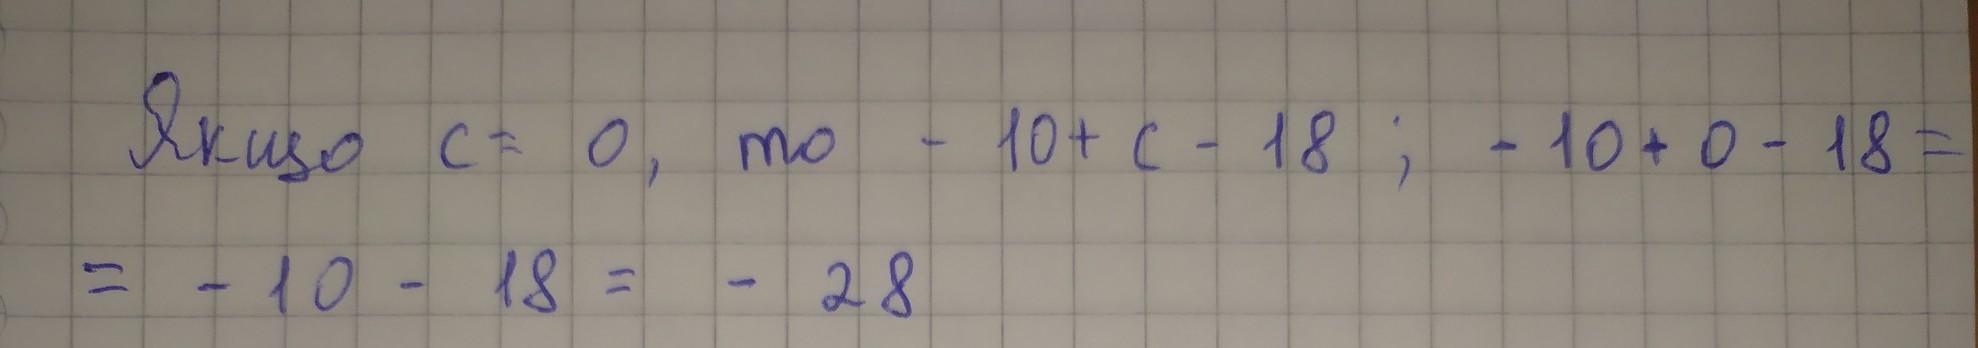 Якщо c = 0, то - 10 + c - 18 ; - 10 + 0 - 18 =
= - 10 - 18 = - 28